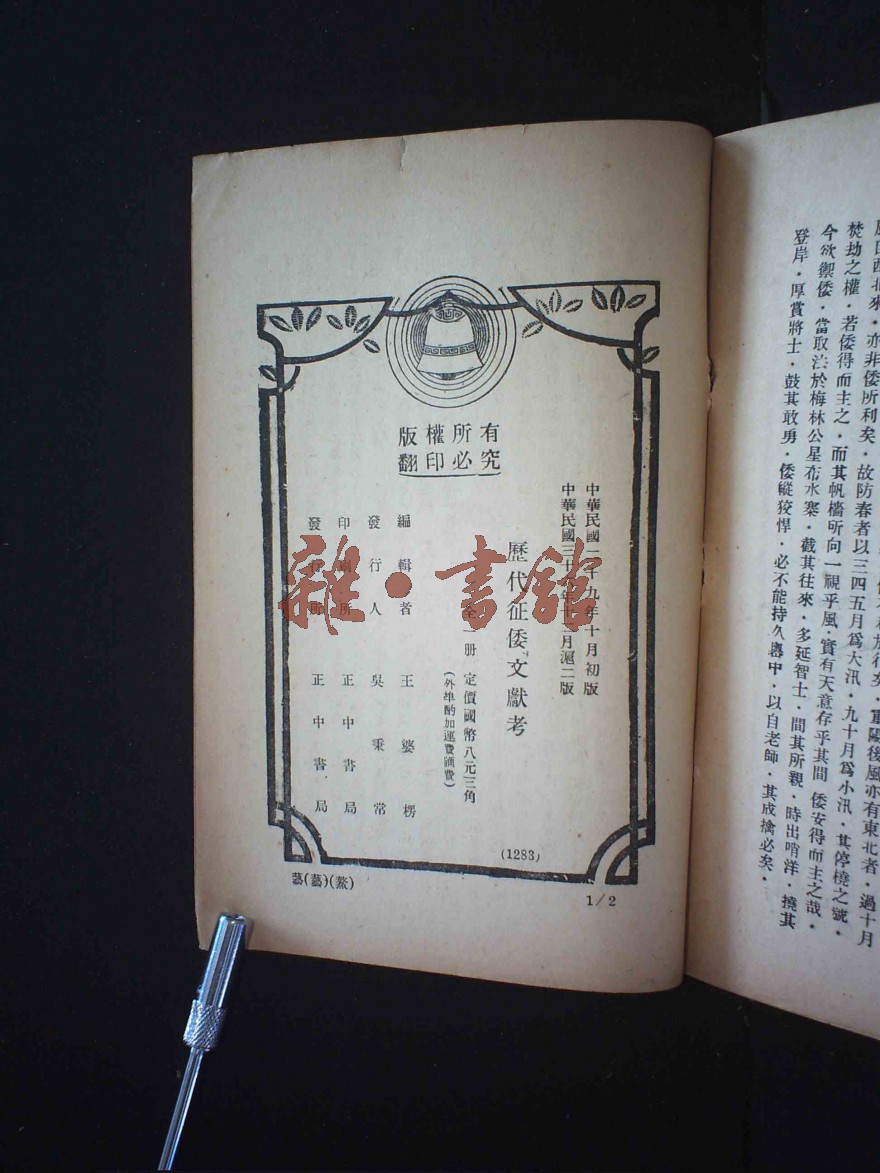 於行矣．重陽後風亦有東北者．過十月
西北來．亦非倭所利矣．故防春者以三四五月爲大汛．九十月爲小汛．其停橈之號．
焚劫之權．若倭得而主之．而其帆檣所向一視乎風．實有天意存乎其間 倭安得而主之哉．
今欲禦倭．當取法於梅林公星布水寨．截其往來．多延智士．間其所親．時出哨洋．撓其
登岸．厚賞將士．鼓其敢勇．倭縱狡悍．必不能持久嶴中．以自老師．其成擒必矣．
版權所有
翻印必究
中華民國二十九年十月初版
中華民國三十年十二月滬二版
歷代征倭文獻考
全一册 定價國幣八元三角
(外埠酌加運費匯費)
編輯者 王婆楞
發行人 吳秉常
印刷所 正中書局
發行所 正中書局
(1283)
藝(藝)(鰲)
1/2
雜·書館